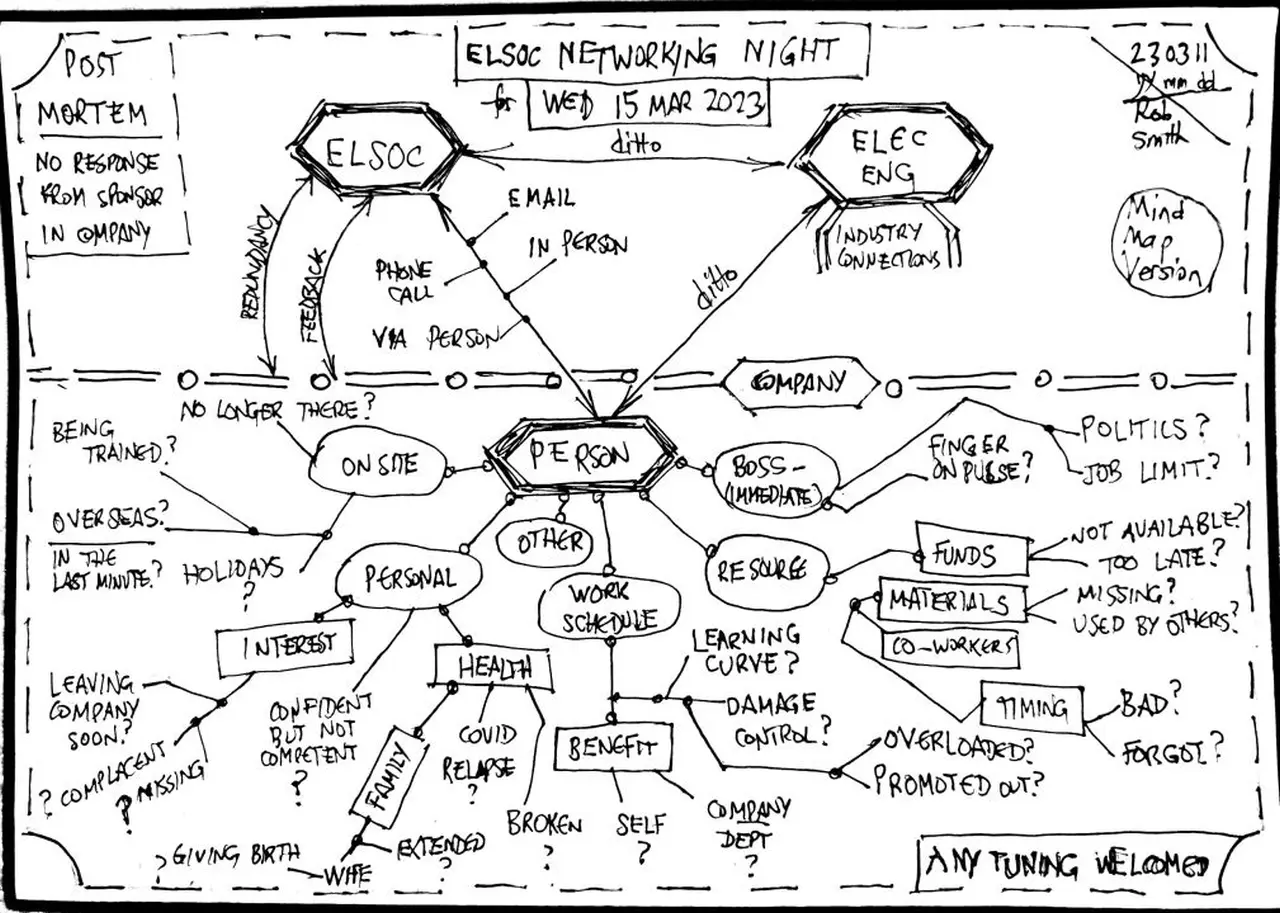 POST
MORTEM
NO RESPONSE
FROM SPONSOR
IN COMPANY
ELSOC NETWORKING NIGHT
for WED 15 MAR 2023
230311
yy mm dd
Rob
Smith
Mind
Map
Version
ELSOC
ditto
ELEC
ENG
INDUSTRY
CONNECTIONS
REDUNDANCY
FEEDBACK
EMAIL
IN PERSON
PHONE
CALL
VIA PERSON
ditto
COMPANY
PERSON
NO LONGER THERE?
ON SITE
BEING
TRAINED?
OVERSEAS?
IN THE
LAST MINUTE?
HOLIDAYS
?
BOSS -
(IMMEDIATE)
FINGER
ON PULSE?
POLITICS?
JOB LIMIT?
OTHER
PERSONAL
INTEREST
LEAVING
COMPANY
SOON?
? COMPLACENT
? MISSING
CONFIDENT
BUT NOT
COMPETENT
?
HEALTH
COVID
RELAPSE
?
BROKEN
?
FAMILY
EXTENDED
?
WIFE
? GIVING BIRTH
WORK
SCHEDULE
LEARNING
CURVE?
DAMAGE
CONTROL?
OVERLOADED?
PROMOTED OUT?
BENEFIT
SELF
?
COMPANY
DEPT
?
RESOURCE
FUNDS
NOT AVAILABLE?
TOO LATE?
MATERIALS
MISSING?
USED BY OTHERS?
CO-WORKERS
TIMING
BAD?
FORGOT?
ANY TUNING WELCOMED